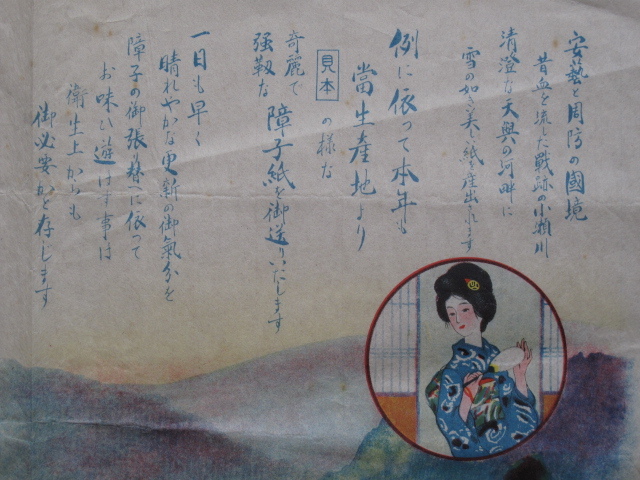 安藝と周防の國境
昔血を流した戰跡の小瀬川
清澄な天與の河畔に
雪の如き美しき紙を産出されます
例に依つて本年も
當生産地より
見本の樣な
奇麗で
強靱な障子紙を御送りいたします
一日も早く
晴れやかな更新の御氣分を
障子の御張り替へに依つて
お味ひ遊ばす事は
衛生上からも
御必要かと存じます